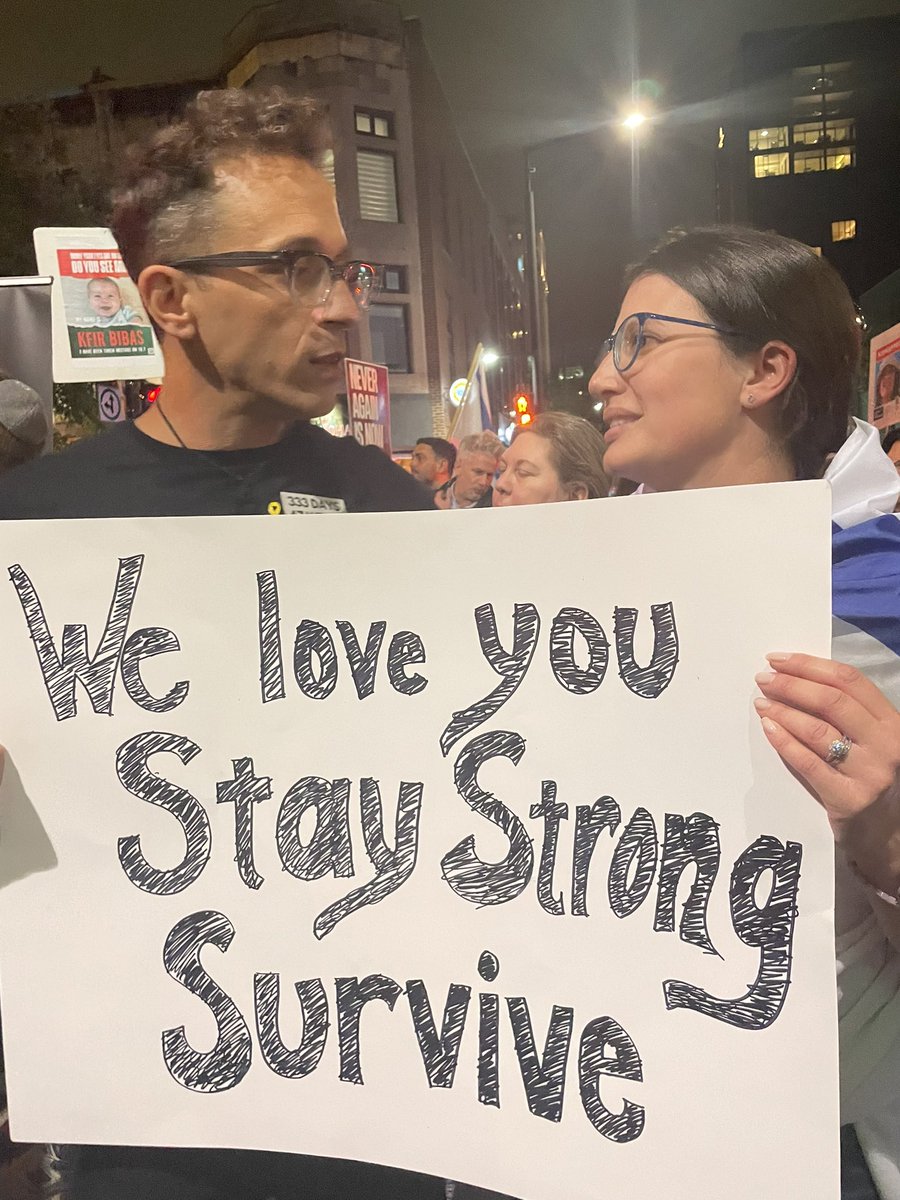 DO YOU SEE
KFIR BIBAS
NEVER
AGAIN
IS NOW
333 DAYS
We love you
Stay Strong
Survive